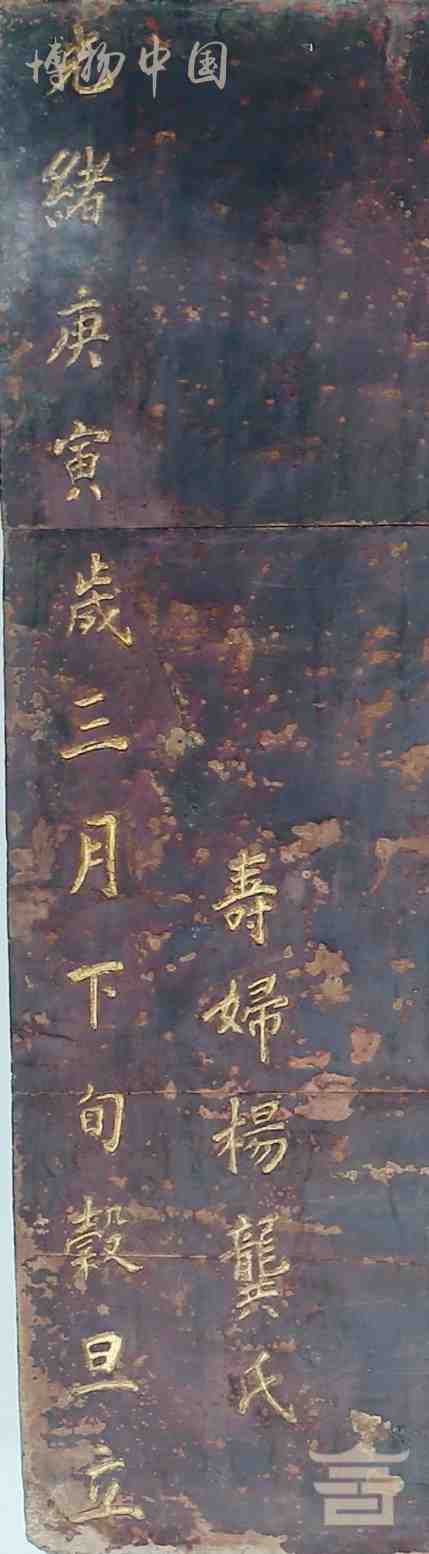 博物中国
壽婦楊龔氏
光緒庚寅歲三月下旬榖旦立